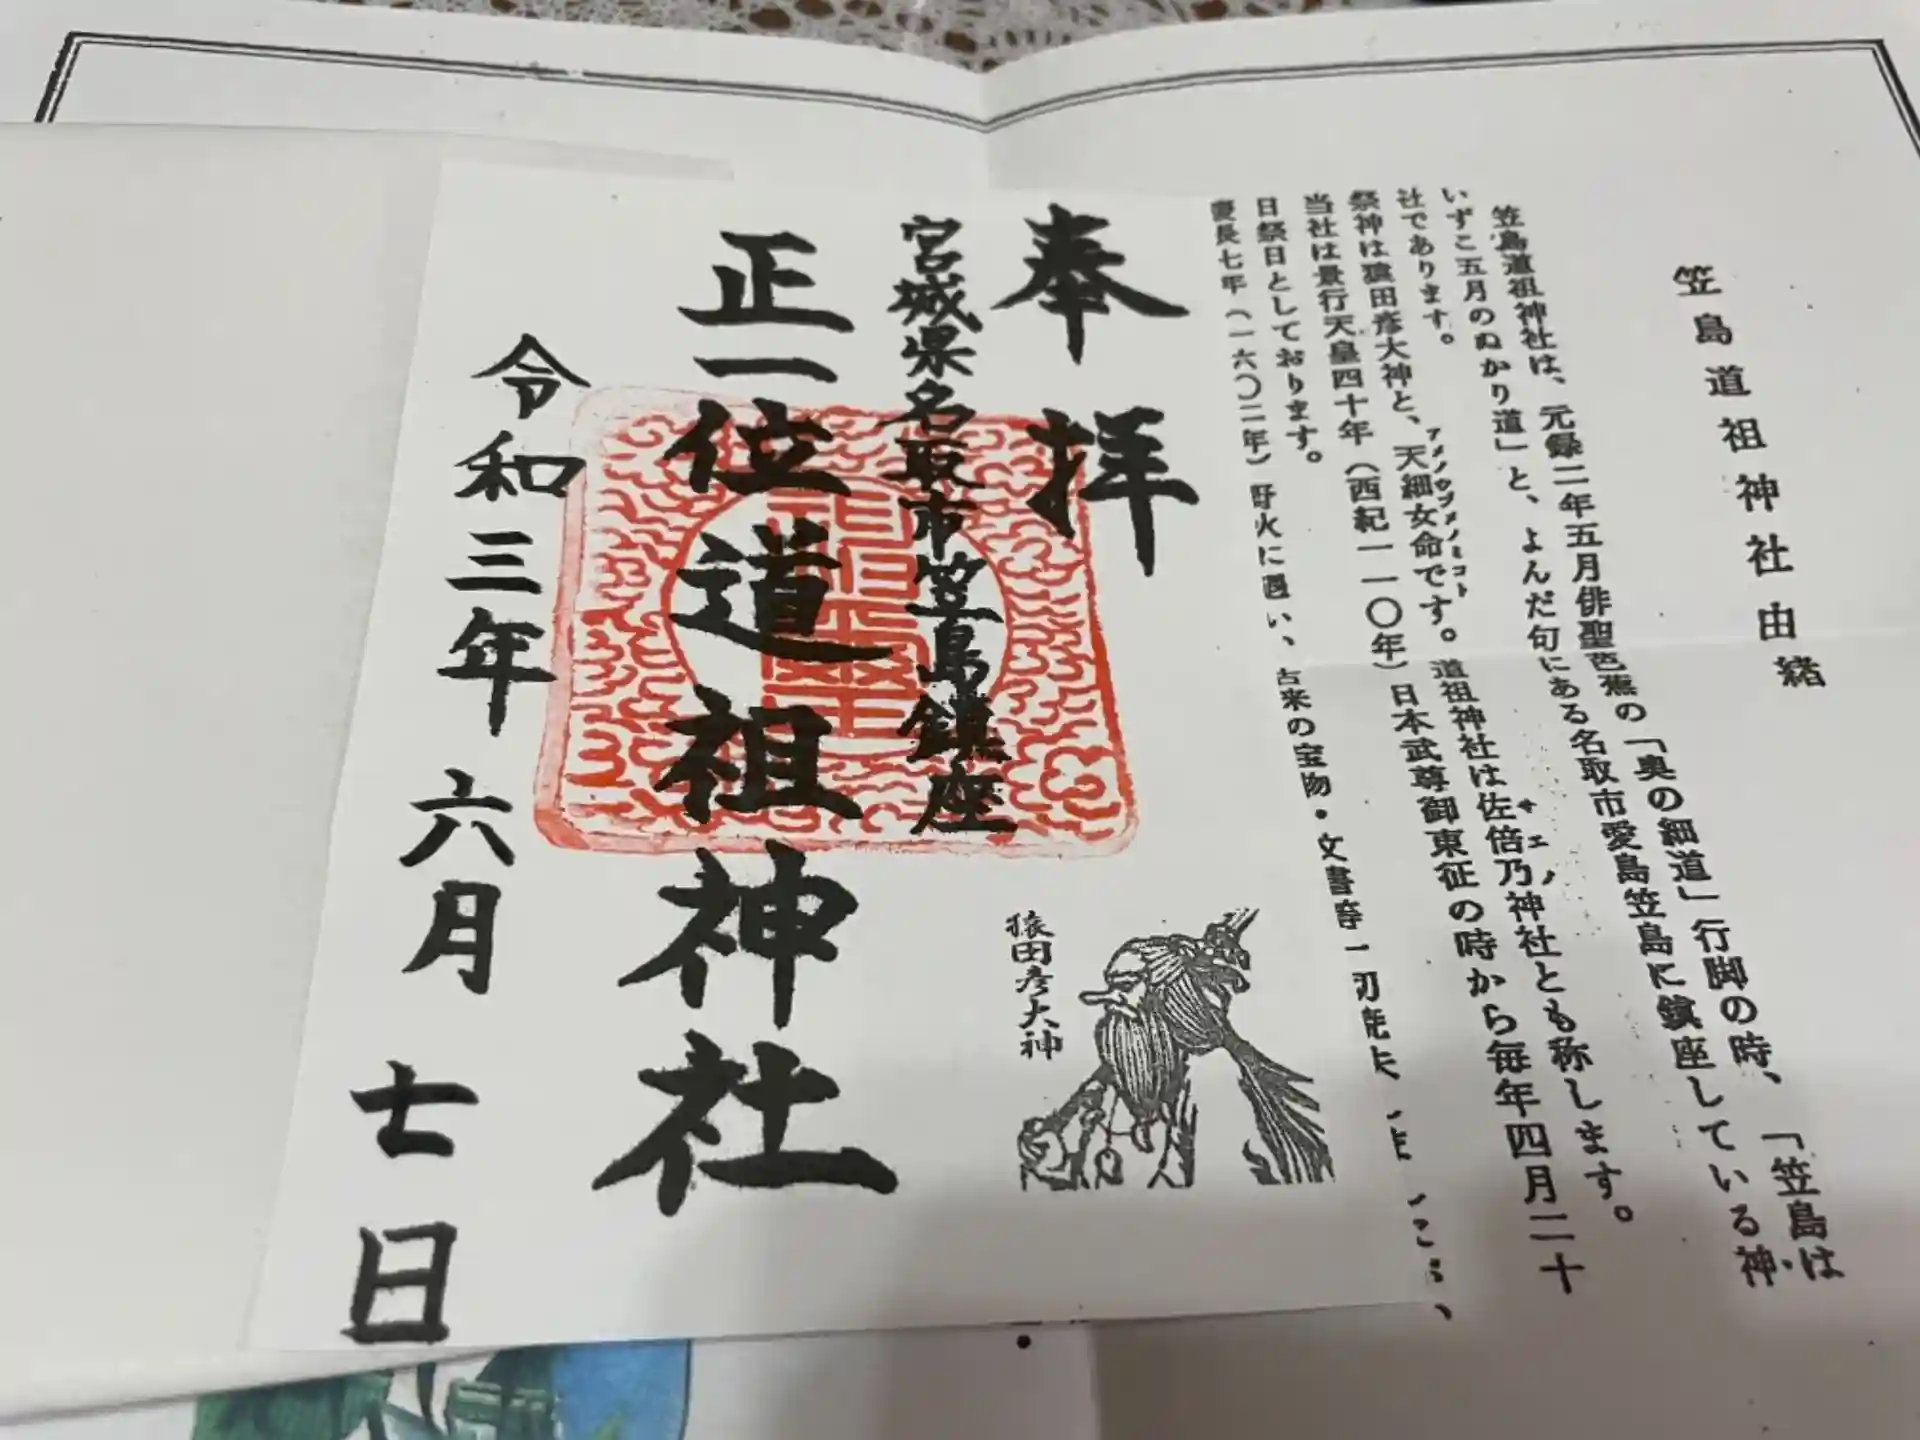 笠島道祖神社由緒
笠島道祖神社は、元録二年五月俳聖芭蕉の「奥の細道」行脚の時、「笠島は
いずこ五月のぬかり道」と、よんだ句にある名取市愛島笠島に鎮座している神
社であります。
祭神は猿田彦大神と、天細女命です。道祖神社は佐倍乃神社とも称します。
アメノウヅメノミコト
サエノ
当社は景行天皇四十年(西紀一一〇年)日本武尊御東征の時から毎年四月二十
日祭日としております。
慶長七年(一六〇二年)野火に遇い、古来の宝物・文書等一切焼失
奉拝
宮城県名取市笠島鎮座
正一位道祖神社
令和三年六月七日
猿田彦大神